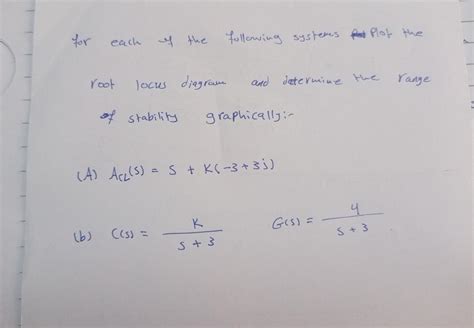 for each of the following systems Plot the
root locus diagram and determine the range
of stability graphically:-
(A) A_CL(S) = S + K(-3+3j)
(b) C(S) = K / S + 3 G(S) = 4 / S + 3